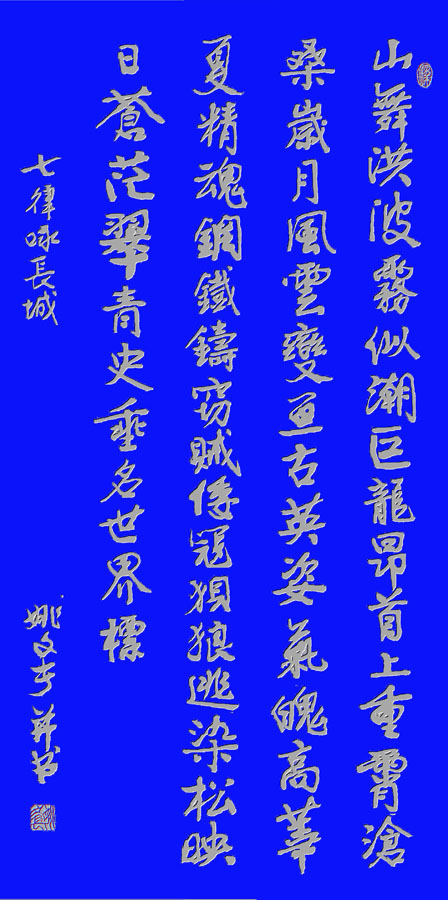 山舞洪波霧似潮巨龍昂首上重霄滄
桑歲月風雲變亘古英姿氣魄高華
夏精魂鋼鐵鑄窃賊倭寇狽狼逃染松映
日蒼茫翠青史垂名世界標
七律咏長城
姚文孝并书